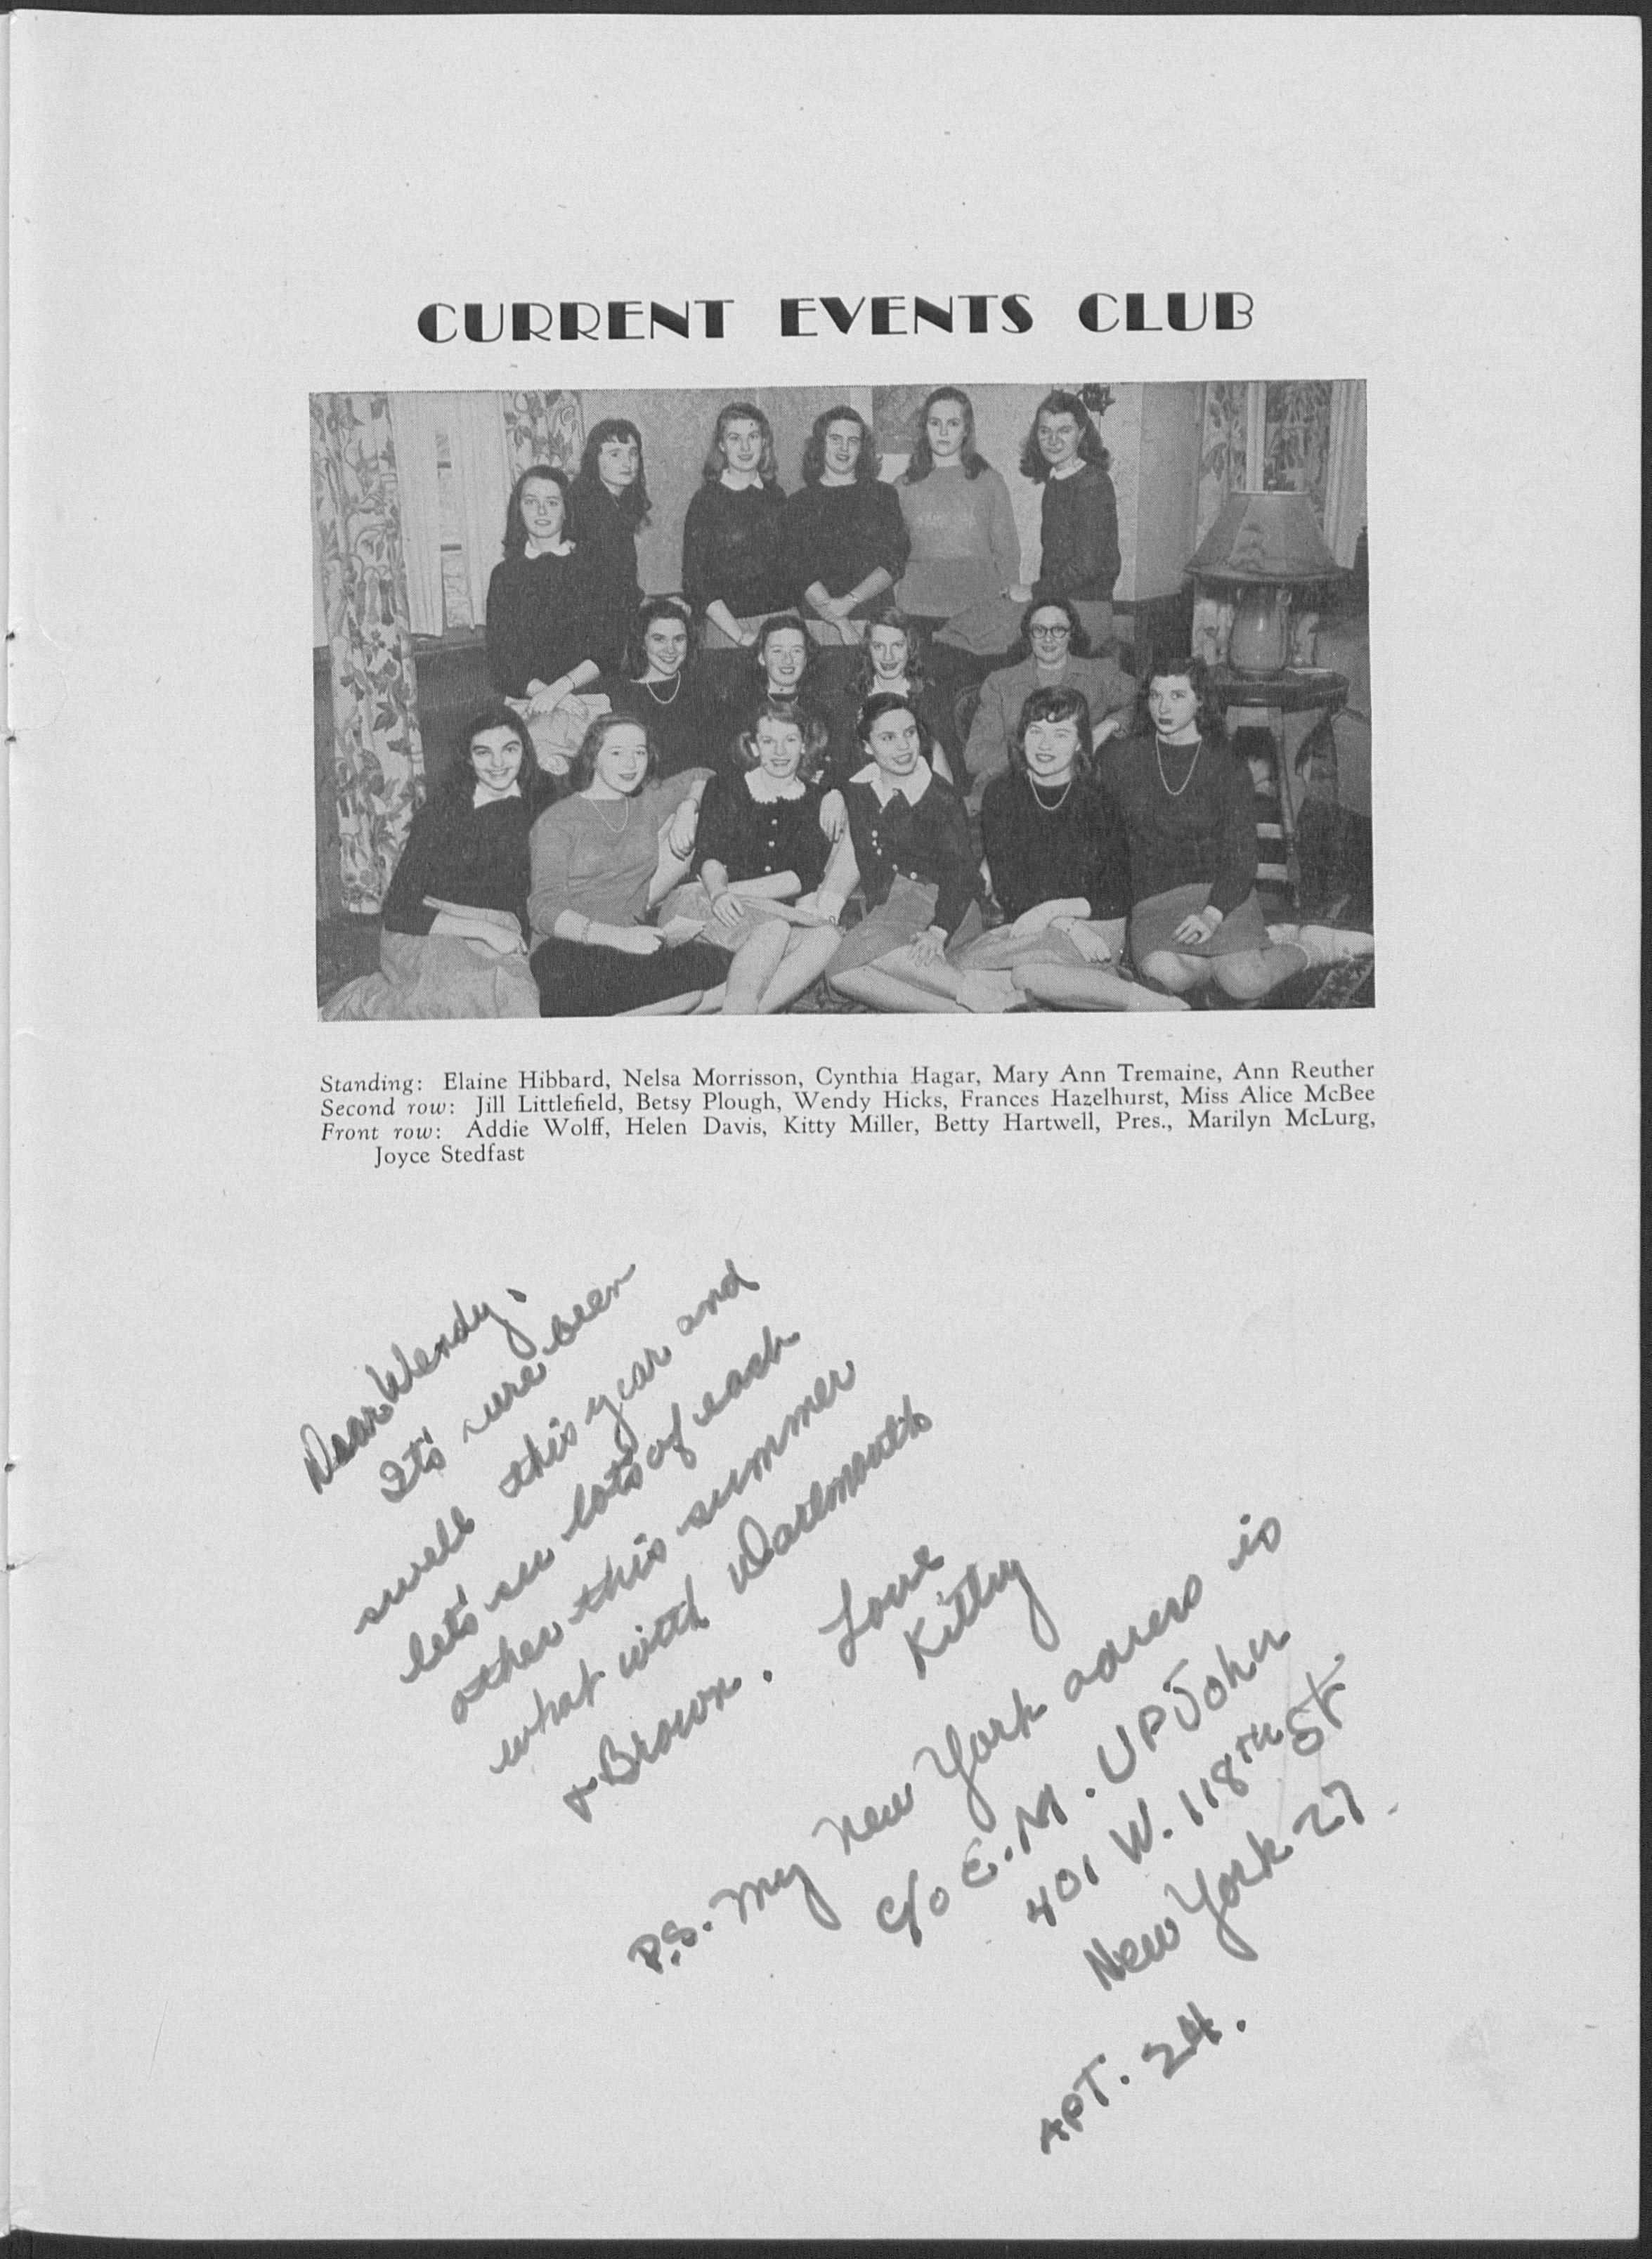 CURRENT EVENTS CLUB
Standing: Elaine Hibbard, Nelsa Morrisson, Cynthia Hagar, Mary Ann Tremaine, Ann Reuther
Second row: Jill Littlefield, Betsy Plough, Wendy Hicks, Frances Hazelhurst, Miss Alice McBee
Front row: Addie Wolff, Helen Davis, Kitty Miller, Betty Hartwell, Pres., Marilyn McLurg,
Joyce Stedfast
Dear Wendy.
It's sure been
swell this year and
let's see lots of each
other this summer
what with Dartmouth
+ Brown. Love
Kitty
P.S. My New York adress is
c/o E.M. UPJohn
401 W. 118TH St.
New York 27.
APT. 24.